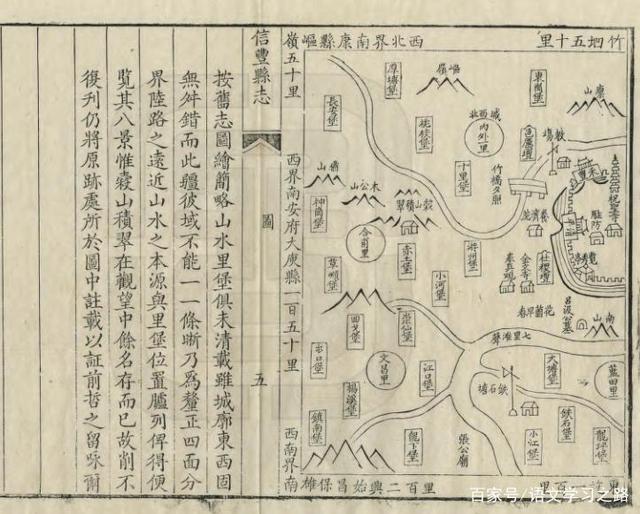 竹垇五十里
西北界南康縣崛
嶺五十里
西界南安府大庾縣一百五十里
西南界南
雄保昌始興二百里
廩山
東崗堡
教場
竹橋夕照
社稷壇
金文寺
花蘭早春
駐防
南山
七里灘聲
大塘堡
藍田里
鉄石塘
鉄石堡
小江堡
龍堡
崛嶺
城西北內外里
十里堡
游州堡
小河堡
穀山積翠
木公山
合前里
長安堡
江口堡
文昌里
張公廟
楊溪堡
鎮南堡
龍下堡
信豐縣志
圖
五
按舊志圖繪簡略山水里堡俱未清載雖城廓東西固
無舛錯而此疆彼域不能一一條晰乃為釐正四面分
界陸路之遠近山水之本源與里堡位置臚列俾得便
覽其八景惟穀山積翠在觀望中餘名存而已故削不
復刊仍將原跡處所於圖中註載以証前哲之留咏爾
百家号/语文学习之路